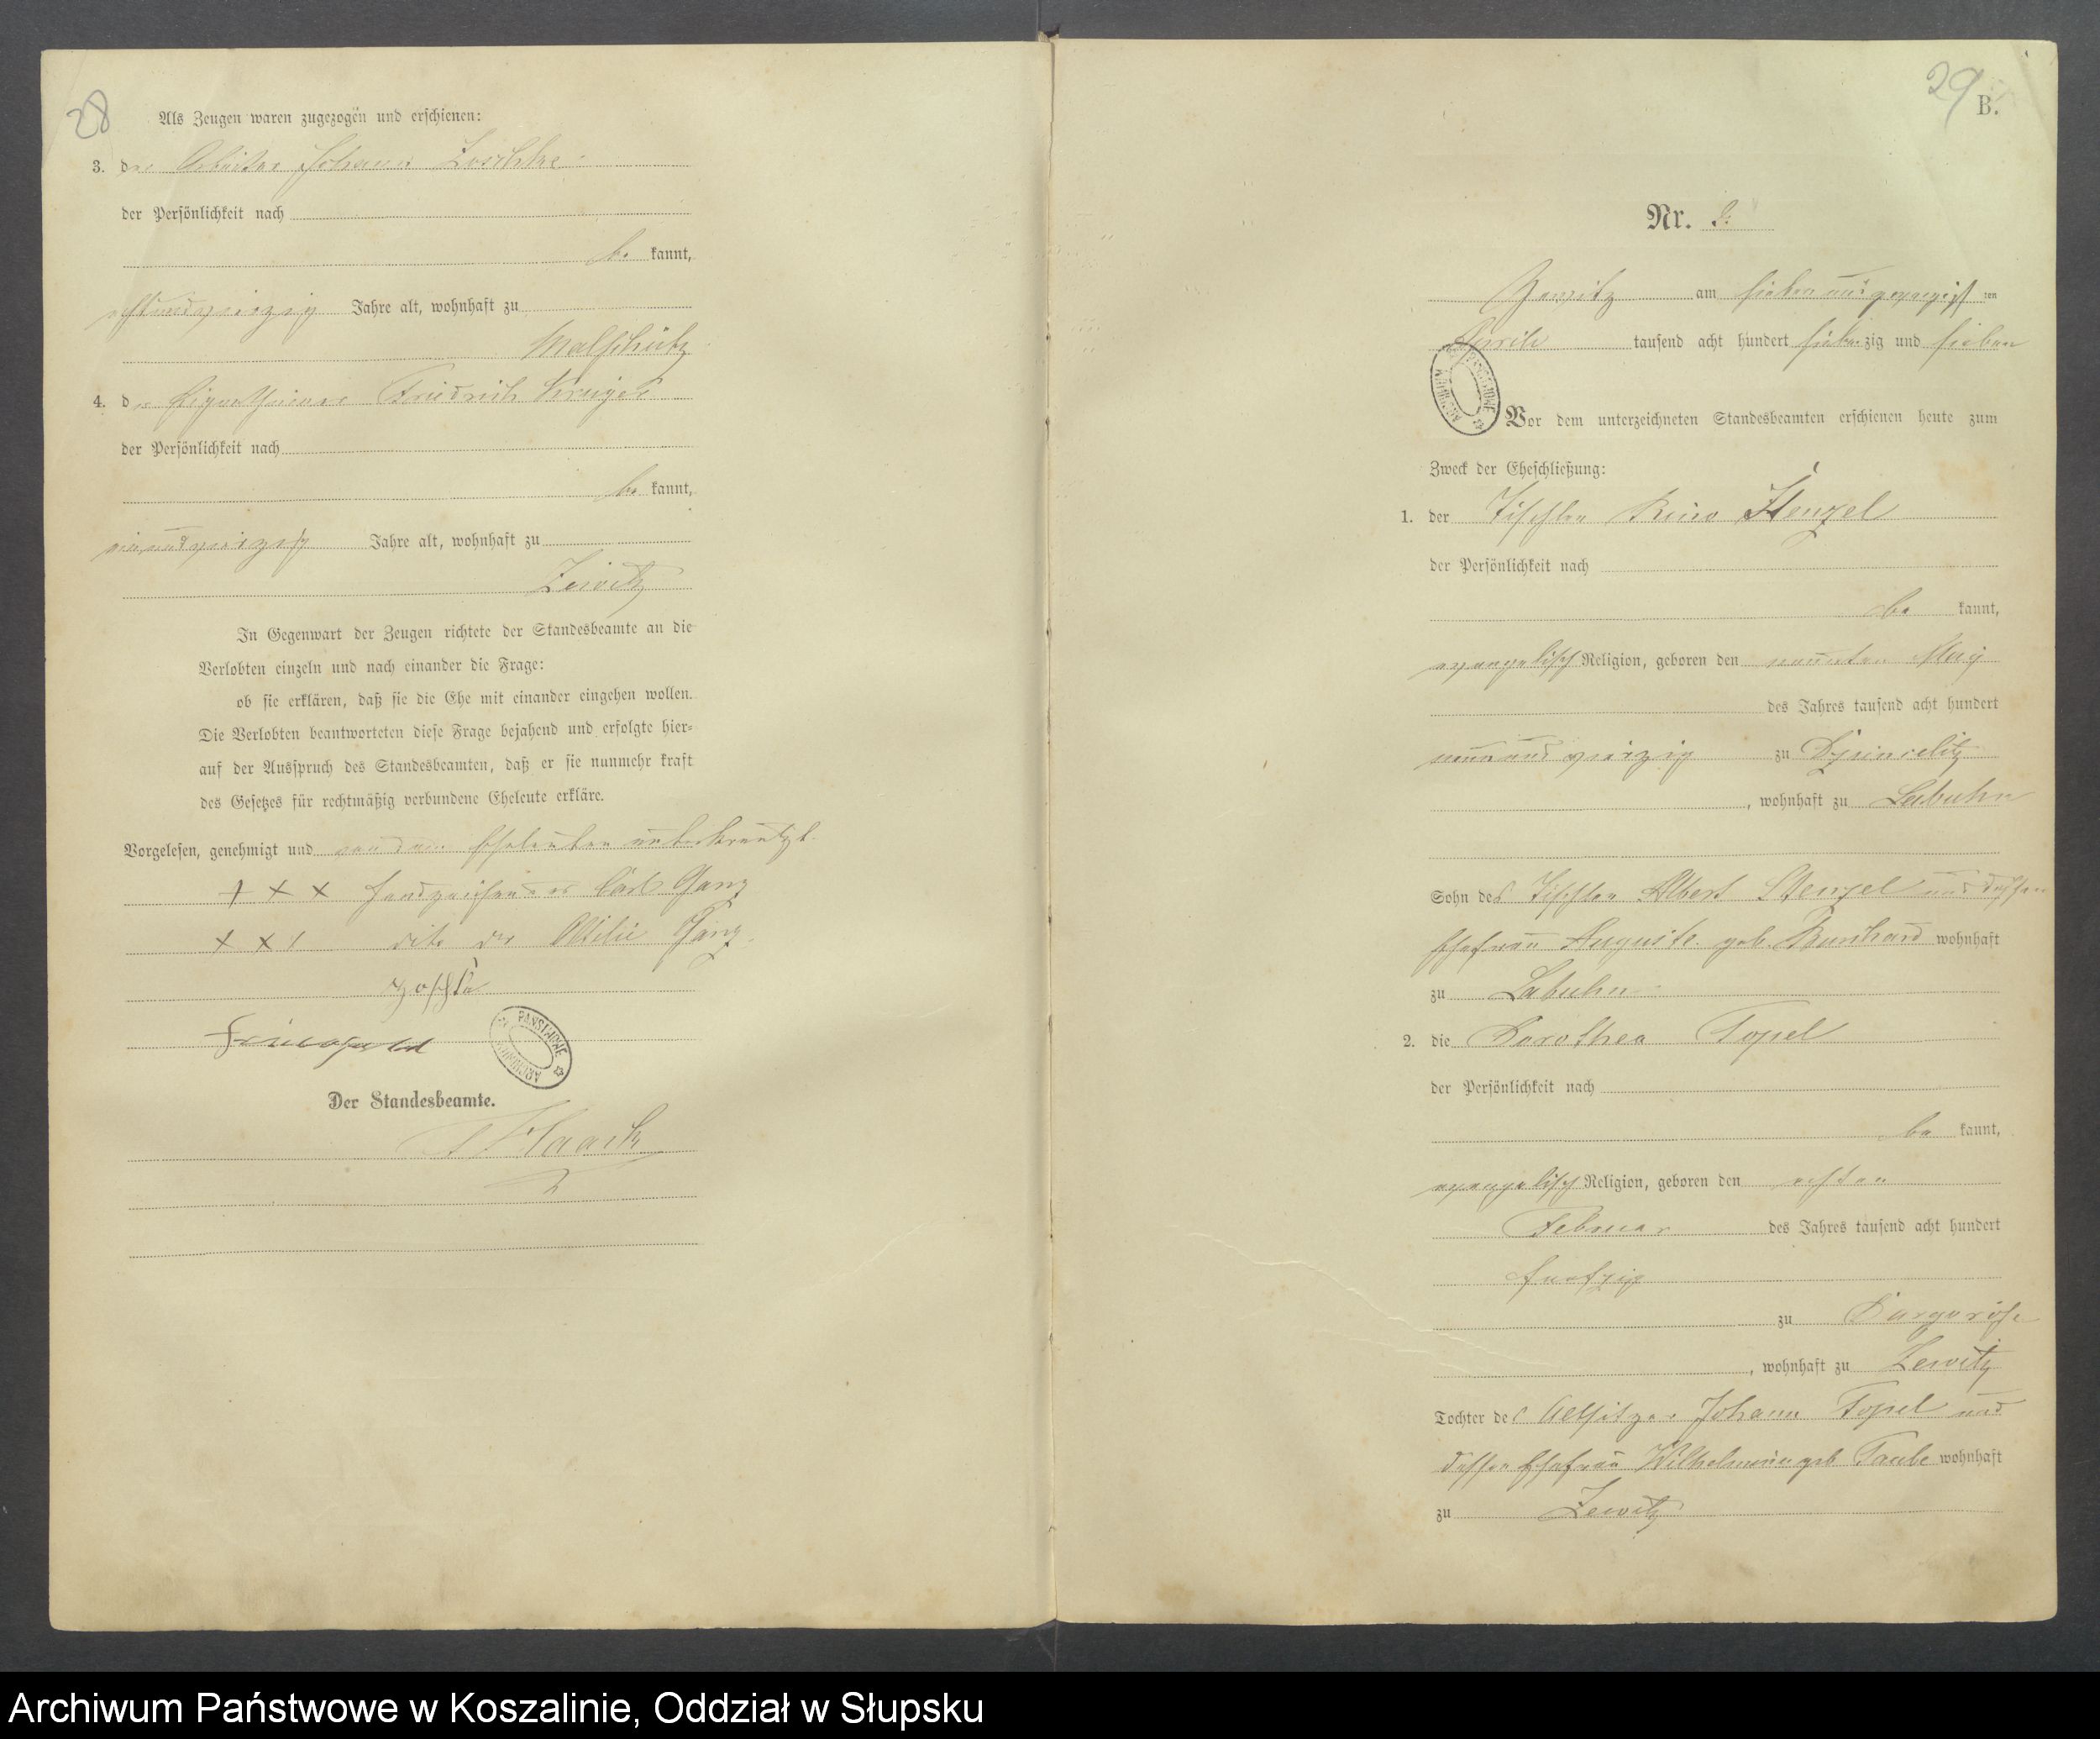 28
Als Zeugen waren zugezogen und erschienen:
3. der Arbeiter Johann Loschke
der Persönlichkeit nach
be kannt,
achtundvierzig Jahre alt, wohnhaft zu
Malschütz
4. der Eigenthümer Friedrich Krüger
der Persönlichkeit nach
be kannt,
einundvierzig Jahre alt, wohnhaft zu
Zewitz
In Gegenwart der Zeugen richtete der Standesbeamte an die
Verlobten einzeln und nach einander die Frage:
ob sie erklären, daß sie die Ehe mit einander eingehen wollen.
Die Verlobten beantworteten diese Frage bejahend und erfolgte hier-
auf der Ausspruch des Standesbeamten, daß er sie nunmehr kraft
des Gesetzes für rechtmäßig verbundene Eheleute erkläre.
Vorgelesen, genehmigt und von den Eheleuten unterkreuzt
+ x x Handzeichen des Carl Ganz
x x x dito der Ganz
Der Standesbeamte.
Haack
29
B.
Nr. 3.
Zewitz am siebenundzwanzigst ten
April tausend acht hundert sieben zig und sieben
Vor dem unterzeichneten Standesbeamten erschienen heute zum
Zweck der Eheschließung:
1. der Tischler Stenzel
der Persönlichkeit nach
be kannt,
evangelisch Religion, geboren den neunten May
des Jahres tausend acht hundert
neunundvierzig zu
, wohnhaft zu Labuhn
Sohn des Tischler Albert Stenzel und dessen
Ehefrau Auguste geb. wohnhaft
zu Labuhn
2. die Dorothea Topel
der Persönlichkeit nach
be kannt,
evangelisch Religion, geboren den achten
Februar des Jahres tausend acht hundert
funfzig
zu Dargeröse
, wohnhaft zu Zewitz
Tochter des Altsitzer Johann Topel und
dessen Ehefrau Wilhelmine geb Taube wohnhaft
zu Zewitz
Archiwum Państwowe w Koszalinie, Oddział w Słupsku